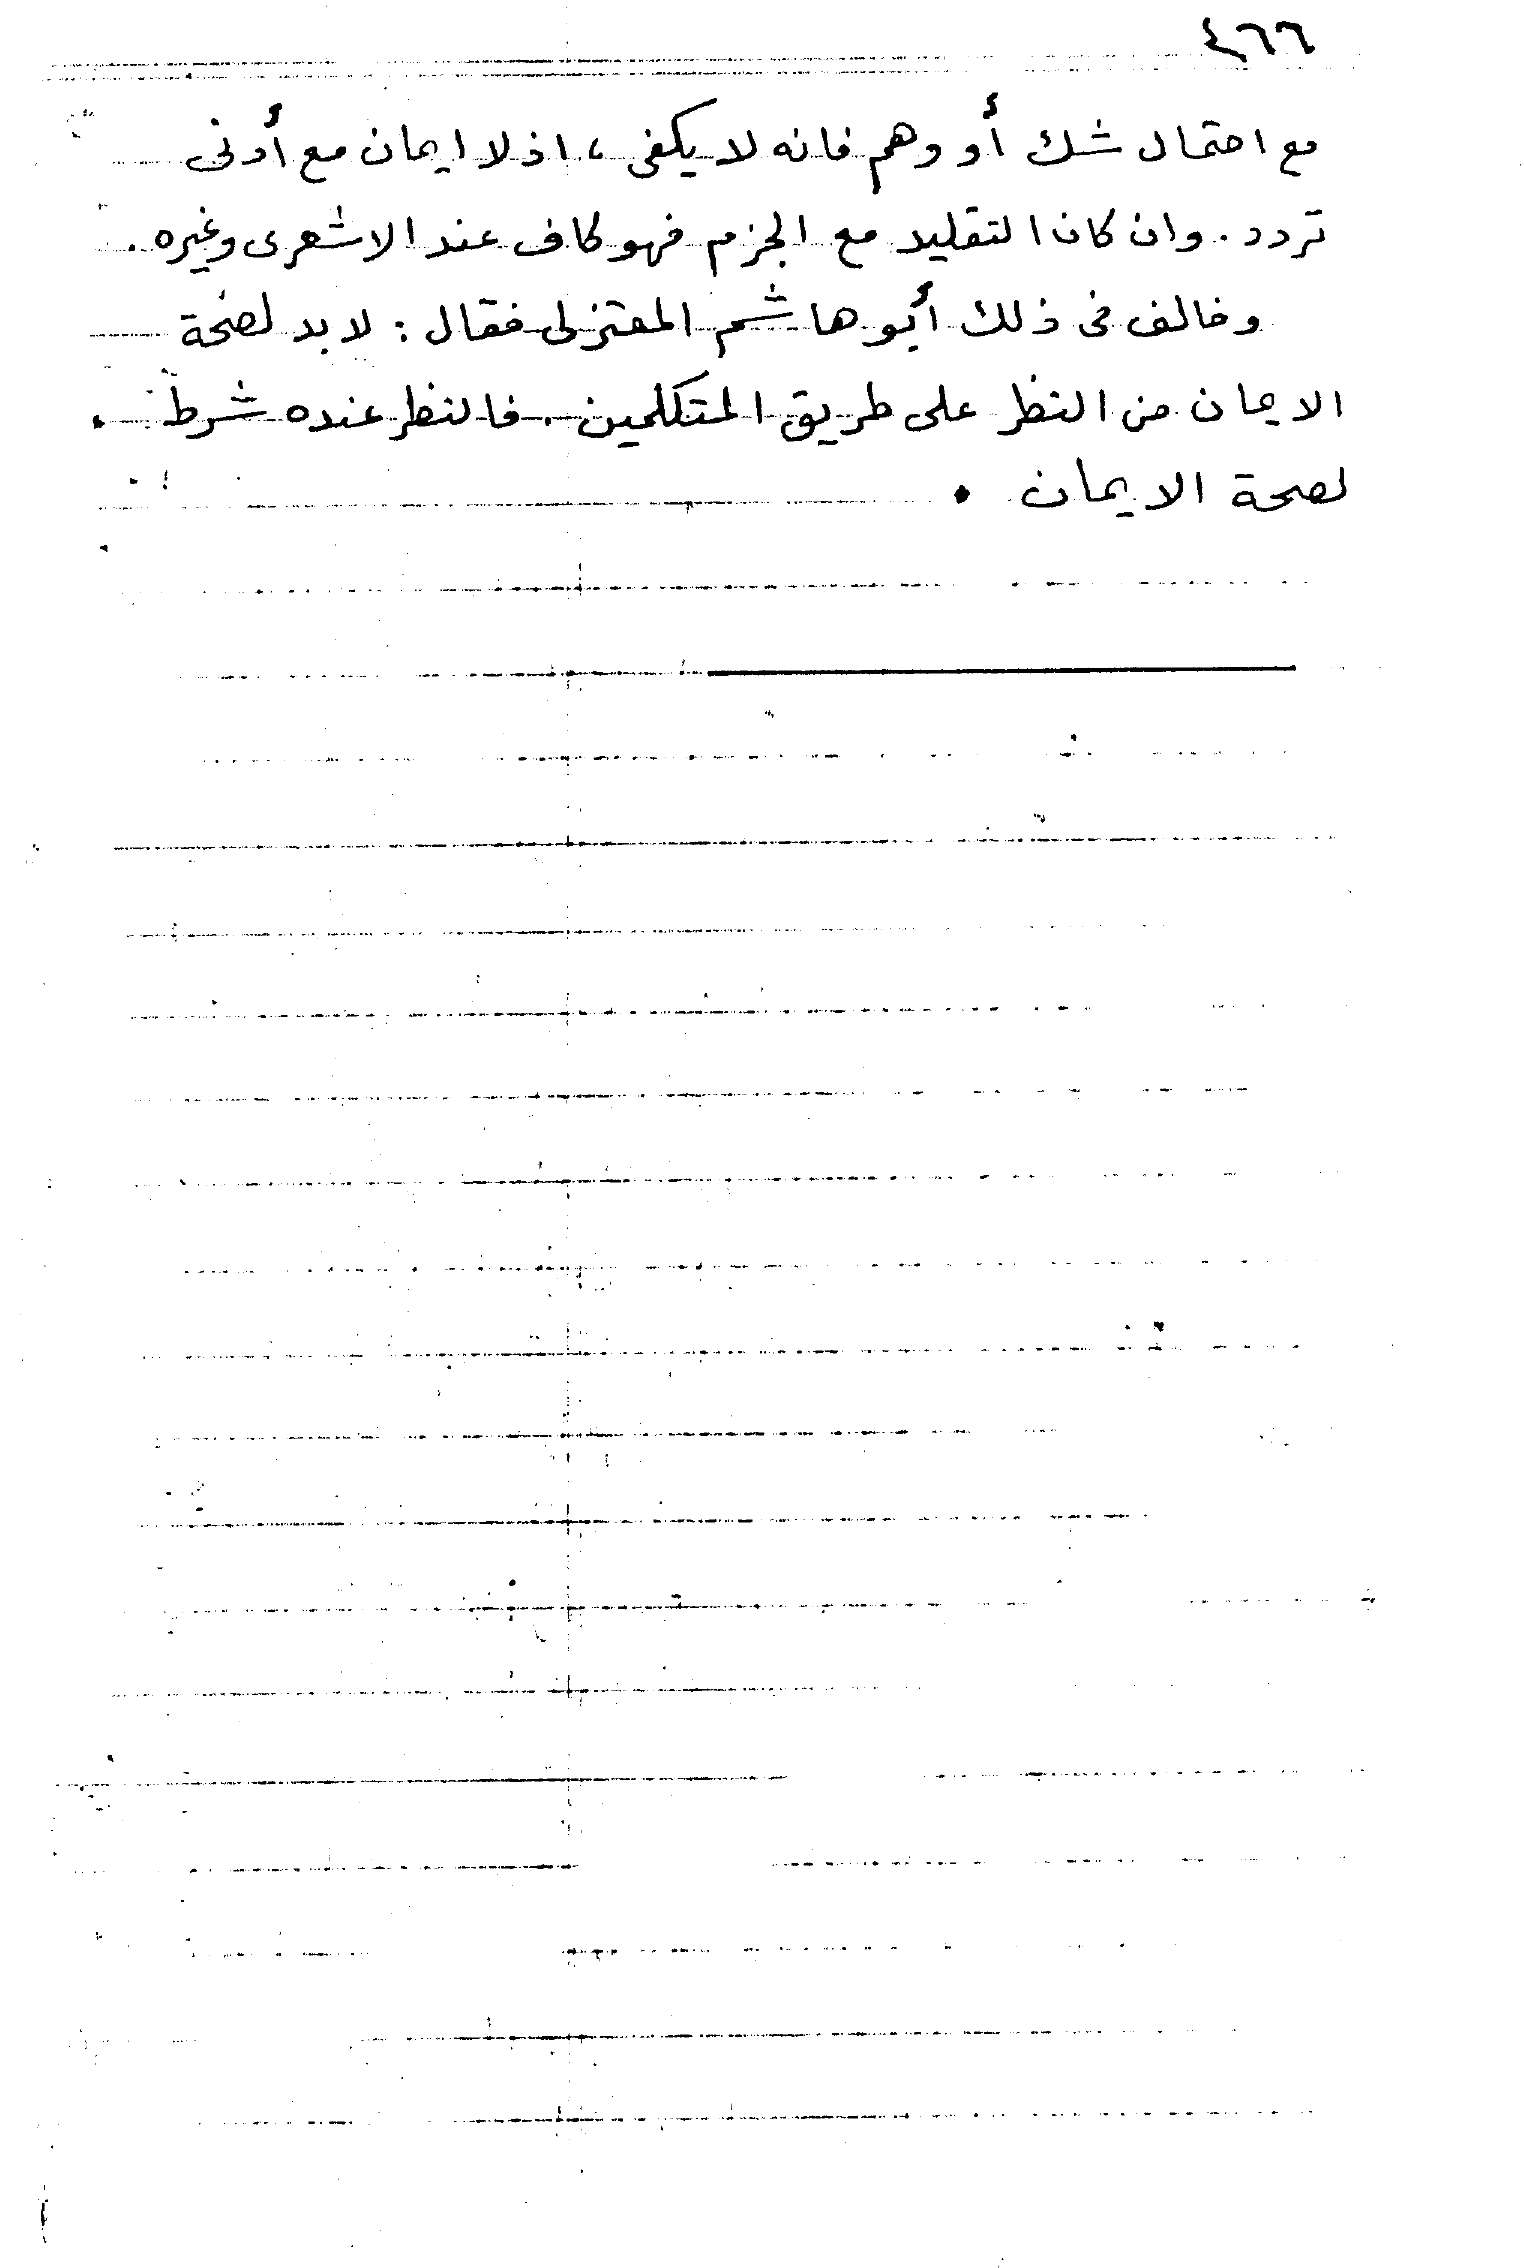 ٤٦٦
مع احتمال شك أو وهم فانه لا يكفى ، اذ لا ايمان مع أدنى
تردد . وان كان التقليد مع الجزم فهو كاف عند الاشعرى وغيره .
وخالف فى ذلك أبو هاشم المعتزلى فقال : لا بد لصحة
الايمان من النظر على طريق المتكلمين . فالنظر عنده شرط
لصحة الايمان .